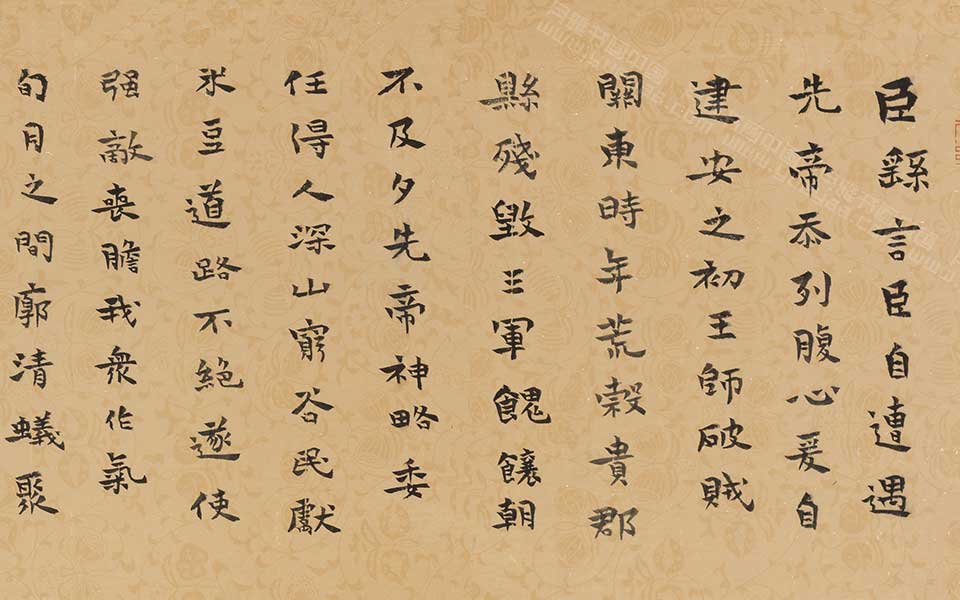 臣繇言臣自遭遇
先帝忝列腹心爰自
建安之初王師破賊
關東時年荒穀貴郡
縣殘毀三軍餽饟朝
不及夕先帝神略委
任得人深山窮谷民獻
米豆道路不絕遂使
强敵喪膽我衆作氣
旬月之間廓清蟻聚